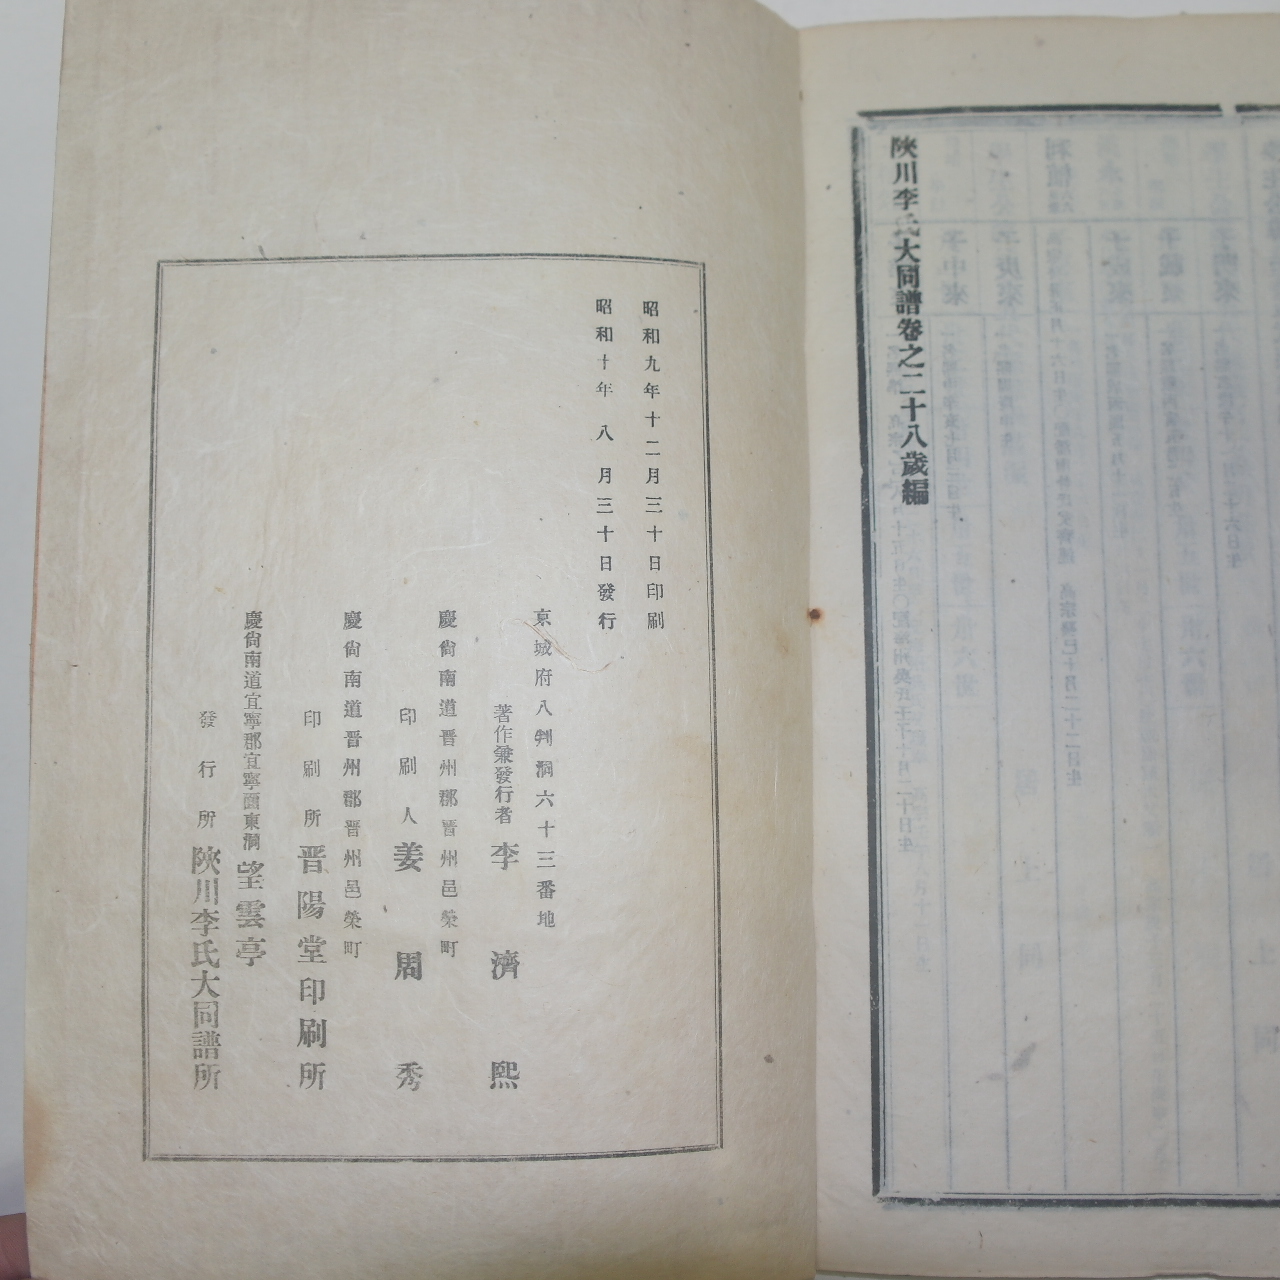 陜川李氏大同譜卷之二十八歲編
昭和九年十二月三十日印刷
昭和十年八月三十日發行
京城府八判洞六十三番地
著作兼發行者 李濟熙
慶尙南道晋州郡晋州邑榮町
印刷人 姜周秀
慶尙南道晋州郡晋州邑榮町
印刷所 晋陽堂印刷所
慶尙南道宜寧郡宜寧面東洞望雲亭
發行所 陜川李氏大同譜所